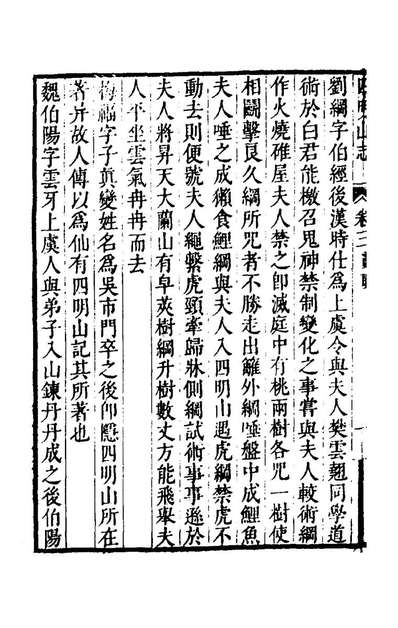 四明山志 卷三
劉綱字伯經後漢時仕爲上虞令與夫人樊雲翹同學道
術於白君能檄召鬼神禁制變化之事嘗與夫人較術綱
作火燒碓屋夫人禁之卽滅庭中有桃兩樹各咒一樹使
相鬭擊良久綱所咒者不勝走出籬外綱唾盤中成鯉魚
夫人唾之成獺食鯉綱與夫人入四明山遇虎綱禁虎不
動去則便號夫人繩繫虎頸牽歸牀側綱試術事事遜於
夫人將昇天大蘭山有皁莢樹綱升樹數丈方能飛舉夫
人平坐雲氣冉冉而去
梅福字子眞變姓名爲吳市門卒之後卽隱四明山所在
著异故人傳以爲仙有四明山記其所著也
魏伯陽字雲牙上虞人與弟子入山鍊丹丹成之後伯陽